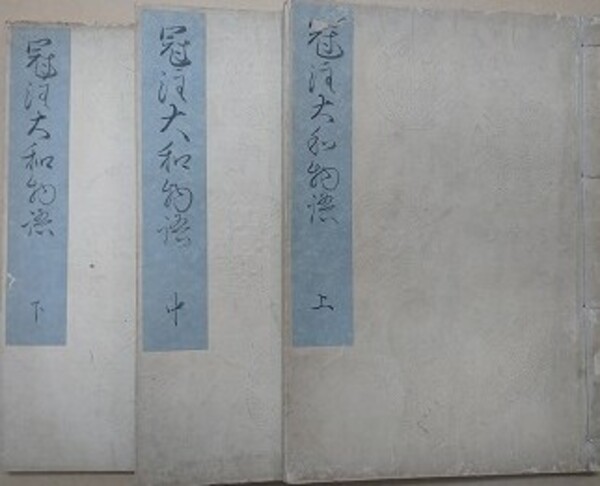 冠注大和物語 上
冠注大和物語 中
冠注大和物語 下